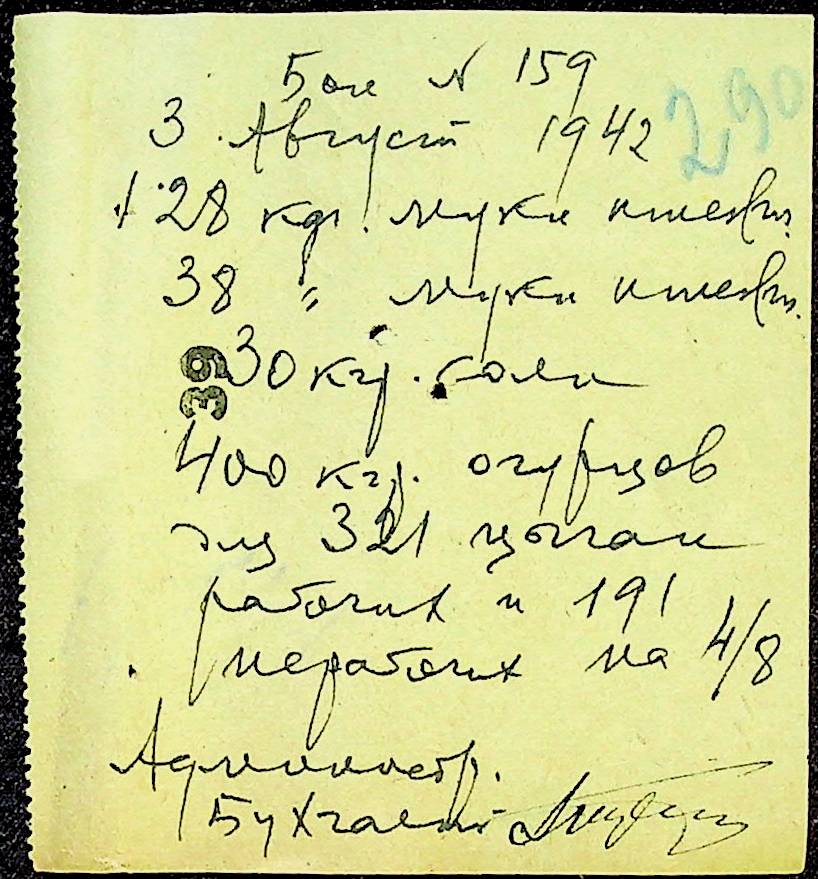 Бон N 159
290
3 Август 1942
128 кгр. муки пшенич.
38 " муки пшенич.
30 кгр. соли
39
400 кгр. огурцов
для 321 цыган
рабочих и 191
нерабочих на 4/8
Администр.
Бухгалт